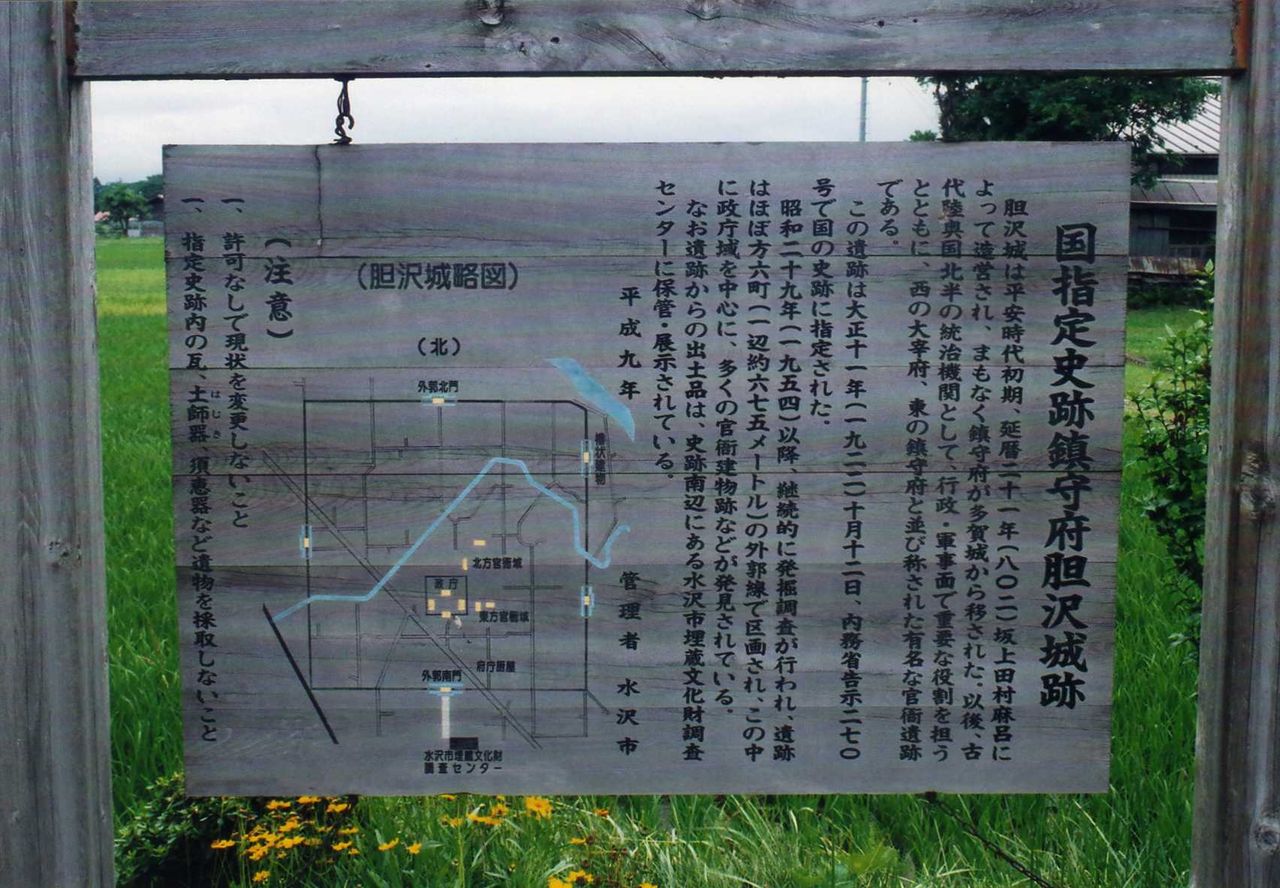 国指定史跡鎮守府胆沢城跡
胆沢城は平安時代初期、延暦二十一年(八〇二)坂上田村麻呂に
よって造営され、まもなく鎮守府が多賀城から移された。以後、古
代陸奥国北半の統治機関として、行政・軍事面で重要な役割を担う
とともに、西の大宰府、東の鎮守府と並び称された有名な官衙遺跡
である。
この遺跡は大正十一年(一九二二)十月十二日、内務省告示二七〇
号で国の史跡に指定された。
昭和二十九年(一九五四)以降、継続的に発掘調査が行われ、遺跡
はほぼ方六町(一辺約六七五メートル)の外郭線で区画され、この中
に政庁域を中心に、多くの官衙建物跡などが発見されている。
なお遺跡からの出土品は、史跡南辺にある水沢市埋蔵文化財調査
センターに保管・展示されている。
平成九年
管理者 水沢市
(胆沢城略図)
(北)
外郭北門
櫓状建物
北方官衙域
政庁
東方官衙域
府庁厨屋
外郭南門
水沢市埋蔵文化財
調査センター
(注意)
一、許可なしで現状を変更しないこと
一、指定史跡内の瓦、土師器、須恵器など遺物を採取しないこと
はじき